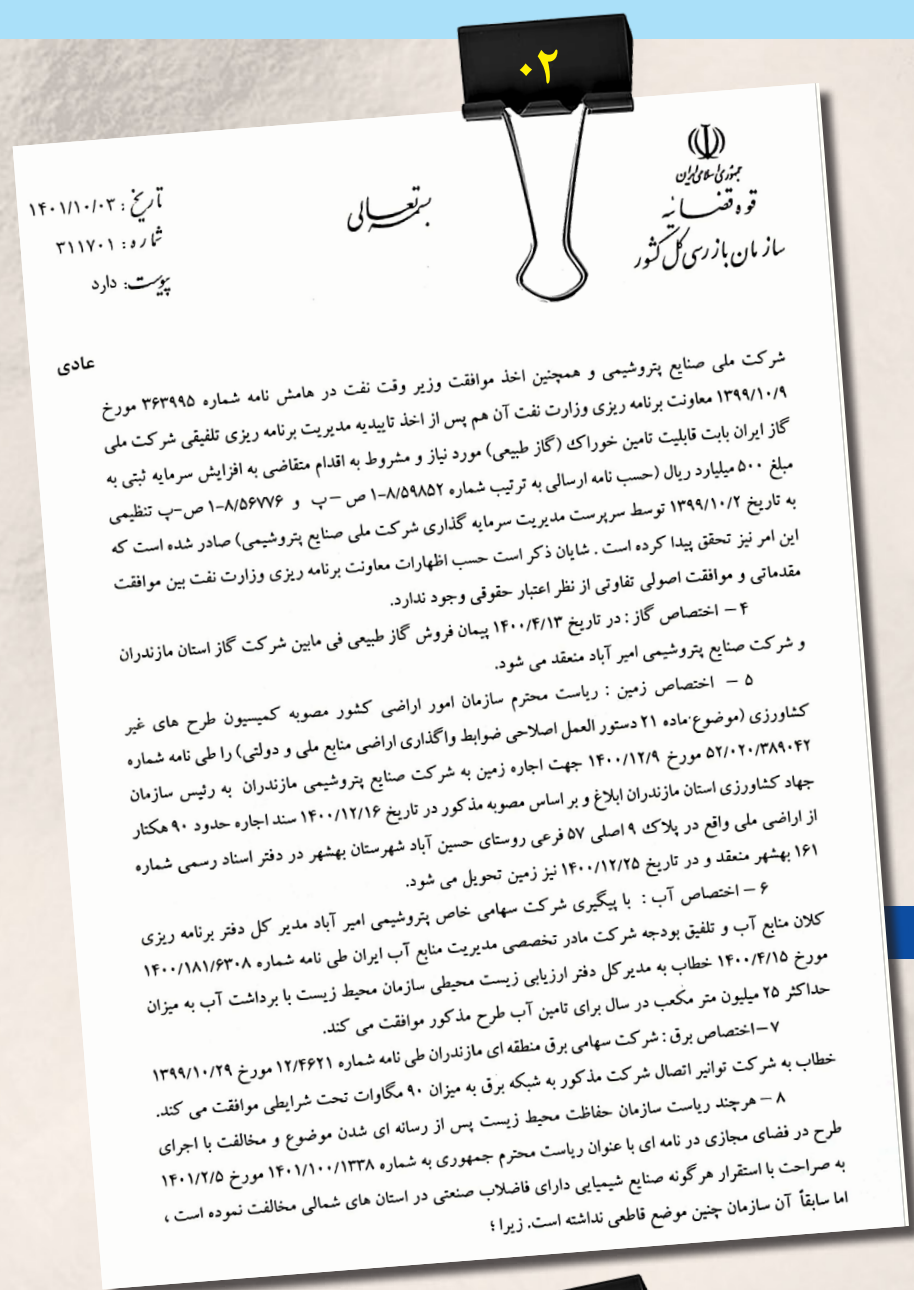 ۰۲
جمهوری اسلامی ایران
قوه قضائیه
سازمان بازرسی کل کشور
بسمه تعالی
تاریخ : ۱۴۰۱/۱۰/۰۳
شماره : ۳۱۱۷۰۱
پیوست: دارد
عادی
شرکت ملی صنایع پتروشیمی و همچنین اخذ موافقت وزیر وقت نفت در هامش نامه شماره ۳۶۳۹۹۵ مورخ
۱۳۹۹/۱۰/۹ معاونت برنامه ریزی وزارت نفت آن هم پس از اخذ تاییدیه مدیریت برنامه ریزی تلفیقی شرکت ملی
گاز ایران بابت قابلیت تامین خوراک (گاز طبیعی) مورد نیاز و مشروط به اقدام متقاضی به افزایش سرمایه ثبتی به
مبلغ ۵۰۰ میلیارد ریال (حسب نامه ارسالی به ترتیب شماره ۸/۵۹۸۵۲-۱ ص –پ و ۸/۵۶۷۷۶-۱ ص-پ تنظیمی
به تاریخ ۱۳۹۹/۱۰/۲ توسط سرپرست مدیریت سرمایه گذاری شرکت ملی صنایع پتروشیمی) صادر شده است که
این امر نیز تحقق پیدا کرده است . شایان ذکر است حسب اظهارات معاونت برنامه ریزی وزارت نفت بین موافقت
مقدماتی و موافقت اصولی تفاوتی از نظر اعتبار حقوقی وجود ندارد.
۴ – اختصاص گاز : در تاریخ ۱۴۰۰/۴/۱۳ پیمان فروش گاز طبیعی فی مابین شرکت گاز استان مازندران
و شرکت صنایع پتروشیمی امیر آباد منعقد می شود.
۵ – اختصاص زمین : ریاست محترم سازمان امور اراضی کشور مصوبه کمیسیون طرح های غیر
کشاورزی (موضوع ماده ۲۱ دستور العمل اصلاحی ضوابط واگذاری اراضی منابع ملی و دولتی) را طی نامه شماره
۵۲/۰۲۰/۳۸۹۰۴۲ مورخ ۱۴۰۰/۱۲/۹ جهت اجاره زمین به شرکت صنایع پتروشیمی مازندران به رئیس سازمان
جهاد کشاورزی استان مازندران ابلاغ و بر اساس مصوبه مذکور در تاریخ ۱۴۰۰/۱۲/۱۶ سند اجاره حدود ۹۰ هکتار
از اراضی ملی واقع در پلاک ۹ اصلی ۵۷ فرعی روستای حسین آباد شهرستان بهشهر در دفتر اسناد رسمی شماره
۱۶۱ بهشهر منعقد و در تاریخ ۱۴۰۰/۱۲/۲۵ نیز زمین تحویل می شود.
۶ – اختصاص آب : با پیگیری شرکت سهامی خاص پتروشیمی امیر آباد مدیر کل دفتر برنامه ریزی
کلان منابع آب و تلفیق بودجه شرکت مادر تخصصی مدیریت منابع آب ایران طی نامه شماره ۱۴۰۰/۱۸۱/۶۳۰۸
مورخ ۱۴۰۰/۴/۱۵ خطاب به مدیرکل دفتر ارزیابی زیست محیطی سازمان محیط زیست با برداشت آب به میزان
حداکثر ۲۵ میلیون متر مکعب در سال برای تامین آب طرح مذکور موافقت می کند.
۷–اختصاص برق : شرکت سهامی برق منطقه ای مازندران طی نامه شماره ۱۲/۴۶۲۱ مورخ ۱۳۹۹/۱۰/۲۹
خطاب به شرکت توانیر اتصال شرکت مذکور به شبکه برق به میزان ۹۰ مگاوات تحت شرایطی موافقت می کند.
۸ – هرچند ریاست سازمان حفاظت محیط زیست پس از رسانه ای شدن موضوع و مخالفت با اجرای
طرح در فضای مجازی در نامه ای با عنوان ریاست محترم جمهوری به شماره ۱۴۰۱/۱۰۰/۱۳۳۸ مورخ ۱۴۰۱/۲/۵
به صراحت با استقرار هرگونه صنایع شیمیایی دارای فاضلاب صنعتی در استان های شمالی مخالفت نموده است ،
اما سابقاً آن سازمان چنین موضع قاطعی نداشته است. زیرا ؛